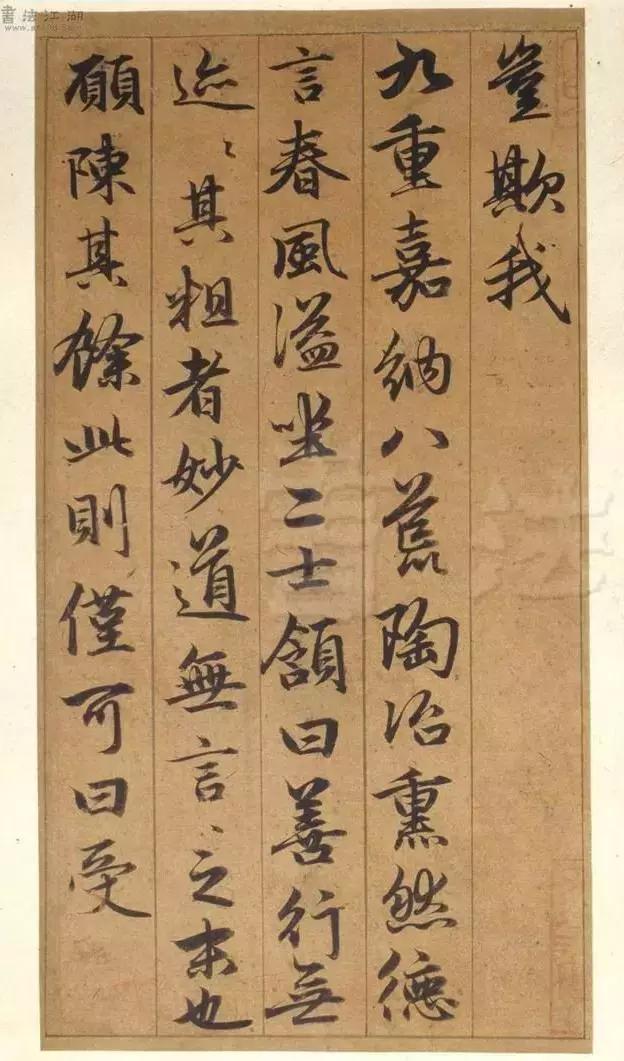 豈欺我
九重嘉納八荒陶冶熏然德
言春風溢坐二士頷曰善行無
迹〻其粗者妙道無言〻之末也
願陳其餘此則僅可曰受
書法江湖
書法